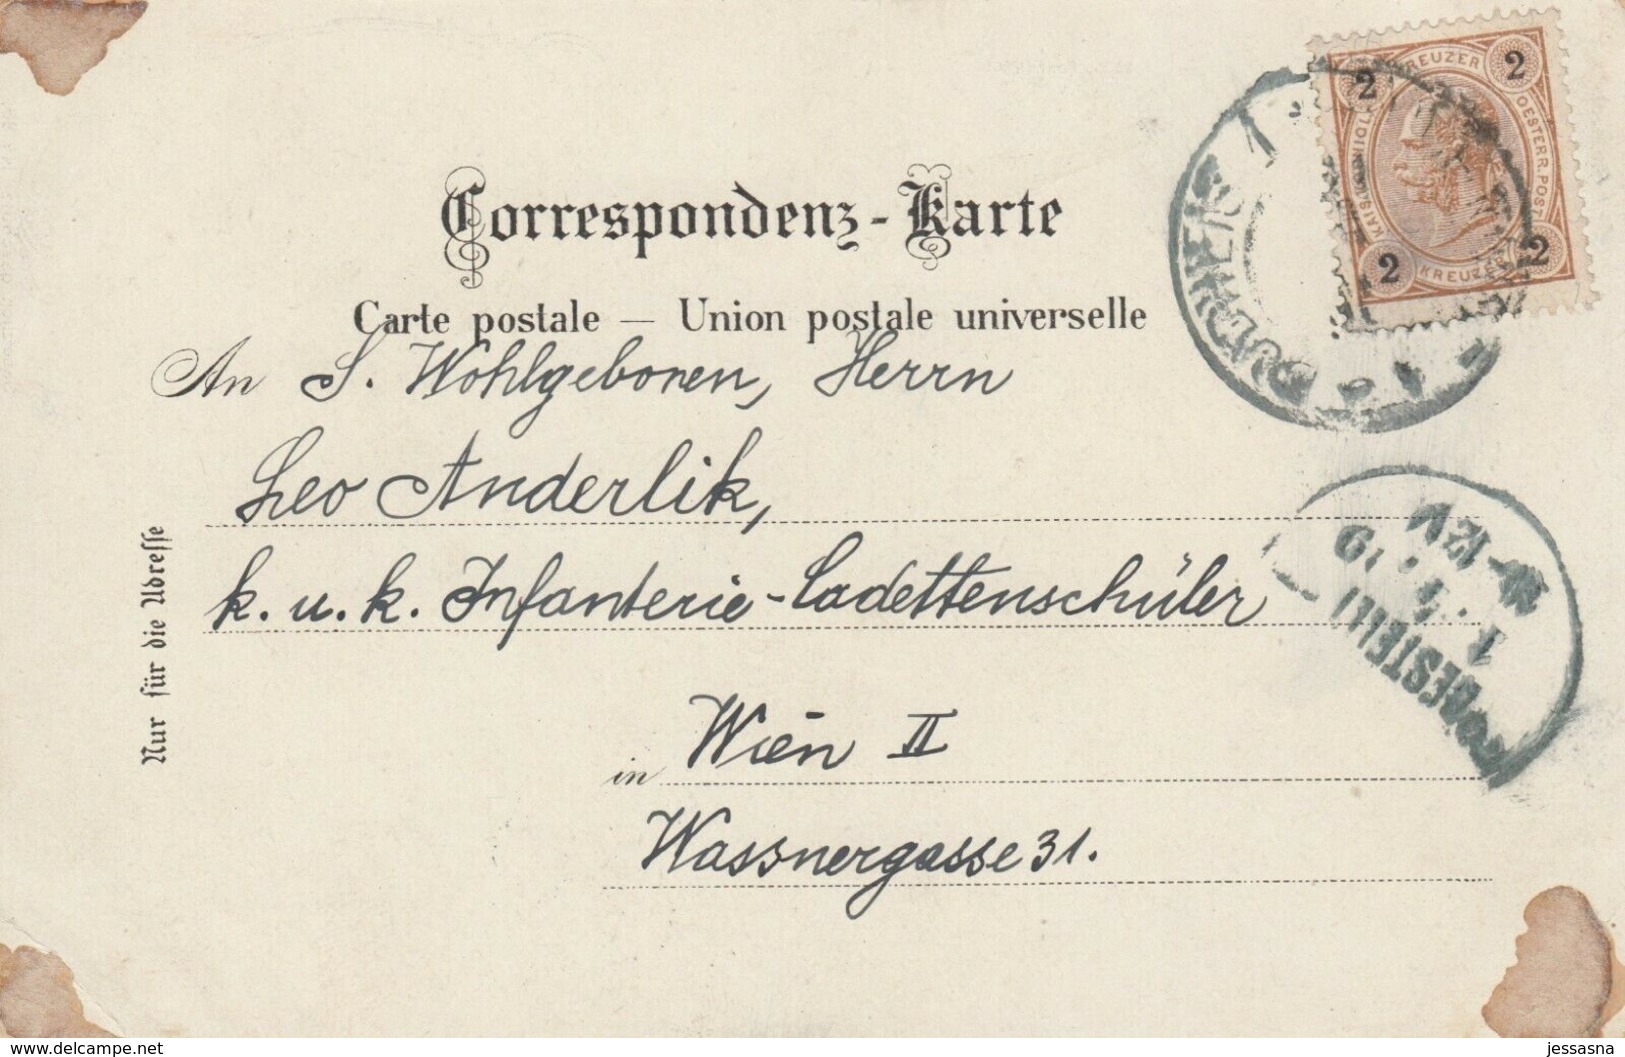 Correspondenz-Karte
Carte postale — Union postale universelle
An S. Wohlgeboren, Herrn
Leo Anderlik,
k. u. k. Infanterie-Cadettenschüler
in Wien II
Wassnergasse 31.
Nur für die Adresse
2 KREUZER 2
OESTERR. POST
2 KREUZER 2
BESTELLT
www.delcampe.net
jessasna